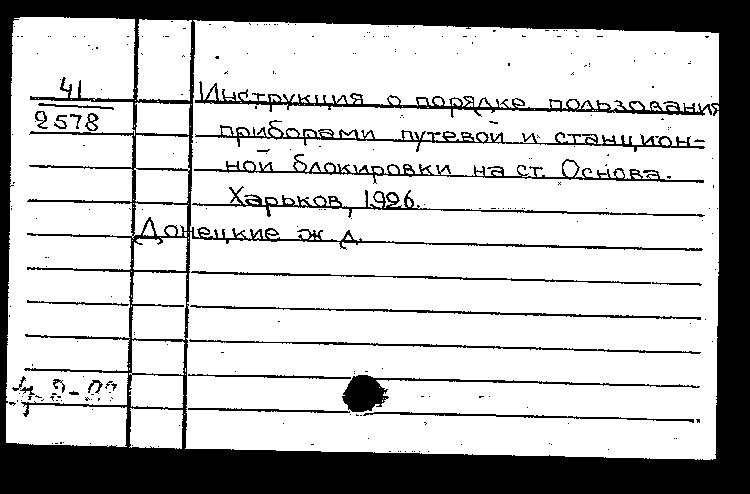 41
2578
Инструкция о порядке пользования
приборами путевой и станцион-
ной блокировки на ст. Основа.
Харьков, 1926.
Донецкие ж. д.